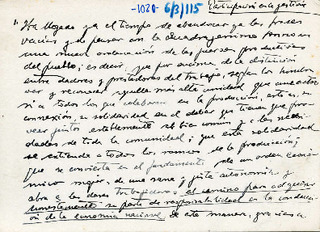 -1020- 6/3/115 Participación en la gestión
"Ha llegado ya el tiempo de abandonar ya las frases
vacías y de pensar con la
una nueva ordenación de las fuerzas productivas
del pueblo; es decir, que por encima de la distinción
entre dadores y prestadores del trabajo, sepan los hombres
ver y reconocer aquella más alta unidad que
a a todos los que colaboran en la producción, esto es, su
connexión, su solidaridad en el deber que tienen que
juntos establemente al bien común y a las necesi-
dades de toda la comunidad; que esta solidaridad
se extienda a todos los ramos de la producción;
que se convierta en el fundamento de un orden econó-
mico mejor, de una sana y justa autonomía y
abra a las clases trabajadoras el camino para adquirir
honestamente su parte de responsabilidad en la conducción
de la economía nacional. De esta manera, gracias a